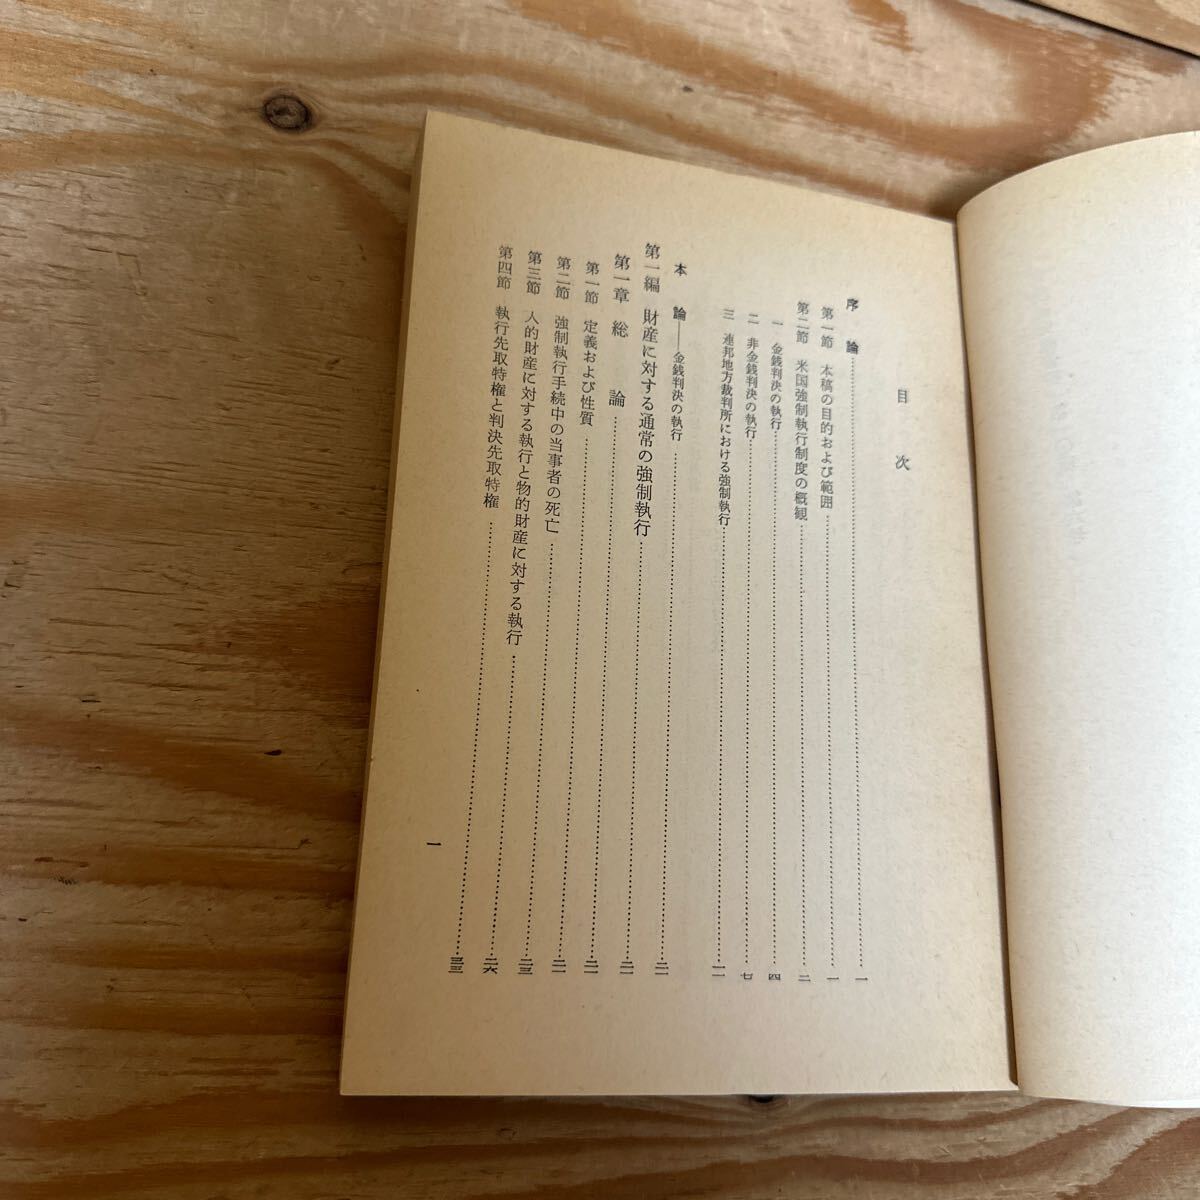 目次
序論……一
第一節 本稿の目的および範囲……一
第二節 米国強制執行制度の概観……二
一 金銭判決の執行……四
二 非金銭判決の執行……七
三 連邦地方裁判所における強制執行……
本論——金銭判決の執行……
第一編 財産に対する通常の強制執行……
第一章 総論……
第一節 定義および性質……
第二節 強制執行手続中の当事者の死亡……
第三節 人的財産に対する執行と物的財産に対する執行……二六
第四節 執行先取特権と判決先取特権……
一